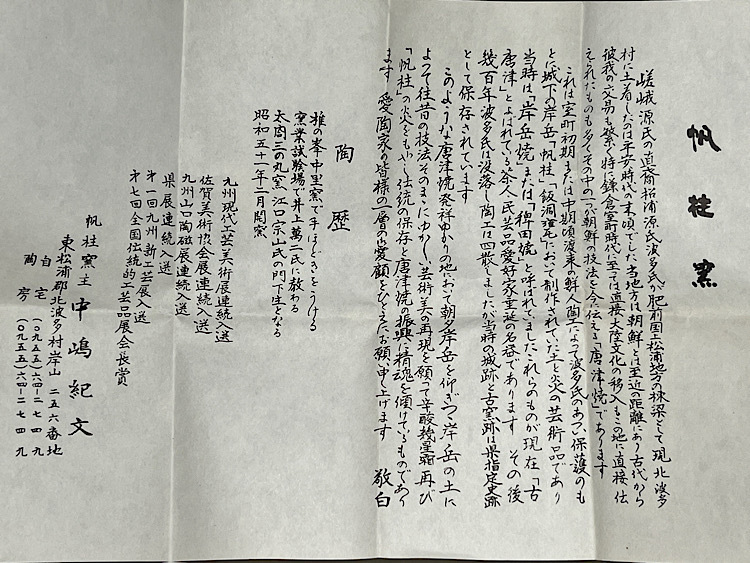 帆柱窯
嵯峨源氏の直裔松浦源氏波多氏が肥前国上松浦地方の棟梁として現 北波多
村に土着したのは平安時代の末頃でした 当地方は朝鮮とは至近の距離にあり古代から
彼我の交易も繁く特に鎌倉室町時代に至っては直接大陸文化の移入もこの地に直接 伝
えられたものも多くその中の一つが朝鮮の技法を今に伝える「唐津焼」であります
これは室町初期または中期頃渡来の鮮人陶工によって波多氏のあつい保護のも
とに城下の岸岳「帆柱」「飯洞甕」において制作されていた土と炎の芸術品であり
当時は「岸岳焼」または「稗田焼」と呼ばれていましたこれらのものが現在「古
唐津」とよばれている茶人民芸品愛好家垂涎の名器であります その後
幾百年波多氏は没落し陶工は四散しましたが当時の城跡と古窯跡は県指定史跡
として保存されています
このような唐津焼発祥ゆかりの地おいて朝夕岸岳を仰ぎつゝ岸岳の土に
よって往昔の技法そのまゝにゆかしい芸術美の再現を願って辛酸幾星霜 再び
「帆柱」の炎をもやし伝統の保存と唐津焼の振興に精魂を傾けているものであり
ます 愛陶家の皆様の一層の御愛顧のひとえにお願い申し上げます 敬白
陶歴
雅の峯中里窯で手ほどきをうける
窯業試験場で井上萬二氏に教わる
太閤三の丸窯 江口宗山氏の門下生となる
昭和五十一年二月開窯
九州現代工芸美術展連続入選
佐賀美術協会展連続入選
九州山口陶磁展連続入選
県展連続入選
第一回九州新工芸展入選
第七回全国伝統的工芸品展会長賞
帆柱窯主 中嶋紀文
東松浦郡北波多村岸山 二五六番地
自宅 (〇九五五)六四-二七四九
陶房 (〇九五五)六四-二七四九